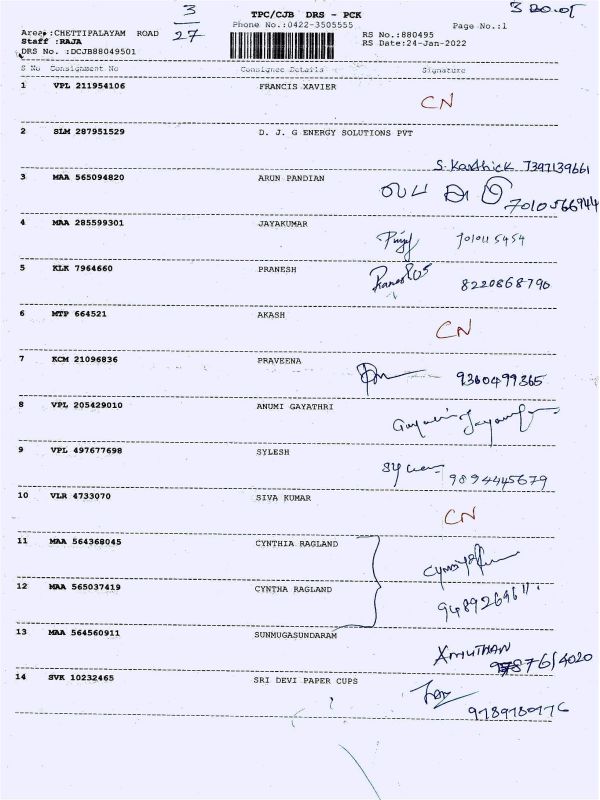 3
27
TPC/CJB DRS - PCK
Phone No.:0422-3505555
Page No.:1
Area :CHETTIPALAYAM ROAD
Staff :RAJA
DRS No. :DCJB88049501
RS No.:880495
RS Date:24-Jan-2022
S No Consignment No Consignee Details Signature
1 VPL 211954106 FRANCIS XAVIER
CN
2 SLM 287951529 D. J. G ENERGY SOLUTIONS PVT
S. Karthick 7397139661
3 MAA 565094820 ARUN PANDIAN
7010566944
4 MAA 285599301 JAYAKUMAR
5 KLK 7964660 PRANESH
8220868790
6 MTP 664521 AKASH
CN
7 KCM 21096836 PRAVEENA
9360499365
8 VPL 205429010 ANUMI GAYATHRI
9 VPL 497677698 SYLESH
9894445679
10 VLR 4733070 SIVA KUMAR
CN
11 MAA 564368045 CYNTHIA RAGLAND
12 MAA 565037419 CYNTHA RAGLAND
13 MAA 564560911 SUNMUGASUNDARAM
14 SVK 10232465 SRI DEVI PAPER CUPS